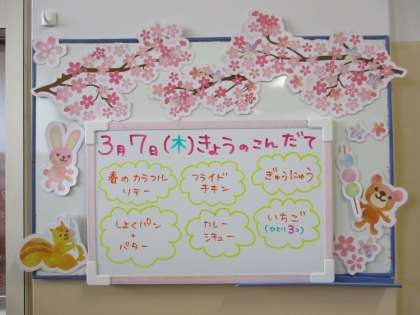 3月7日(木)きょうのこんだて
春のカラフル
ソテー
フライド
チキン
ぎゅうにゅう
しょくパン
+
バター
カレー
シチュー
いちご
(ひとり3コ)